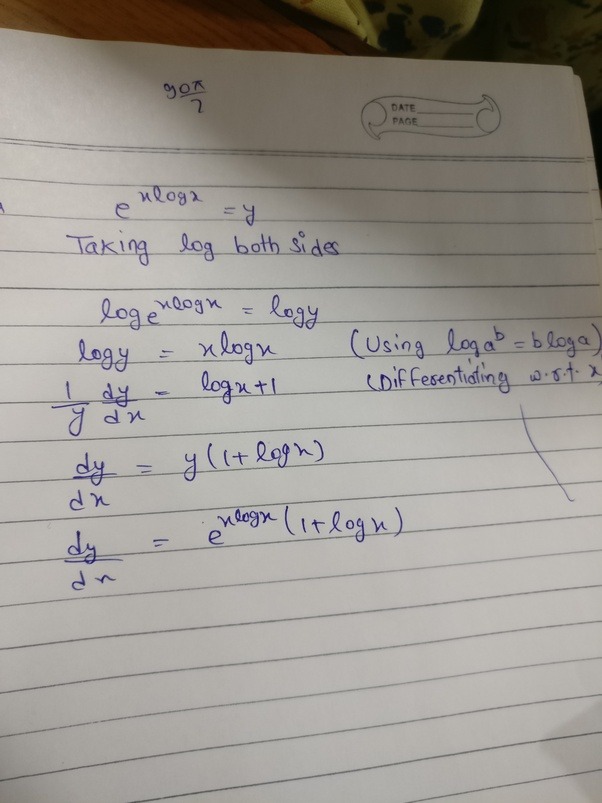 90π/2
DATE
PAGE
e^{x log x} = y
Taking log both sides
log e^{x log x} = log y
log y = x log x (Using log a^b = b log a)
1/y dy/dx = log x + 1 (Differentiating w.r.t. x
dy/dx = y(1 + log x)
dy/dx = e^{x log x}(1 + log x)